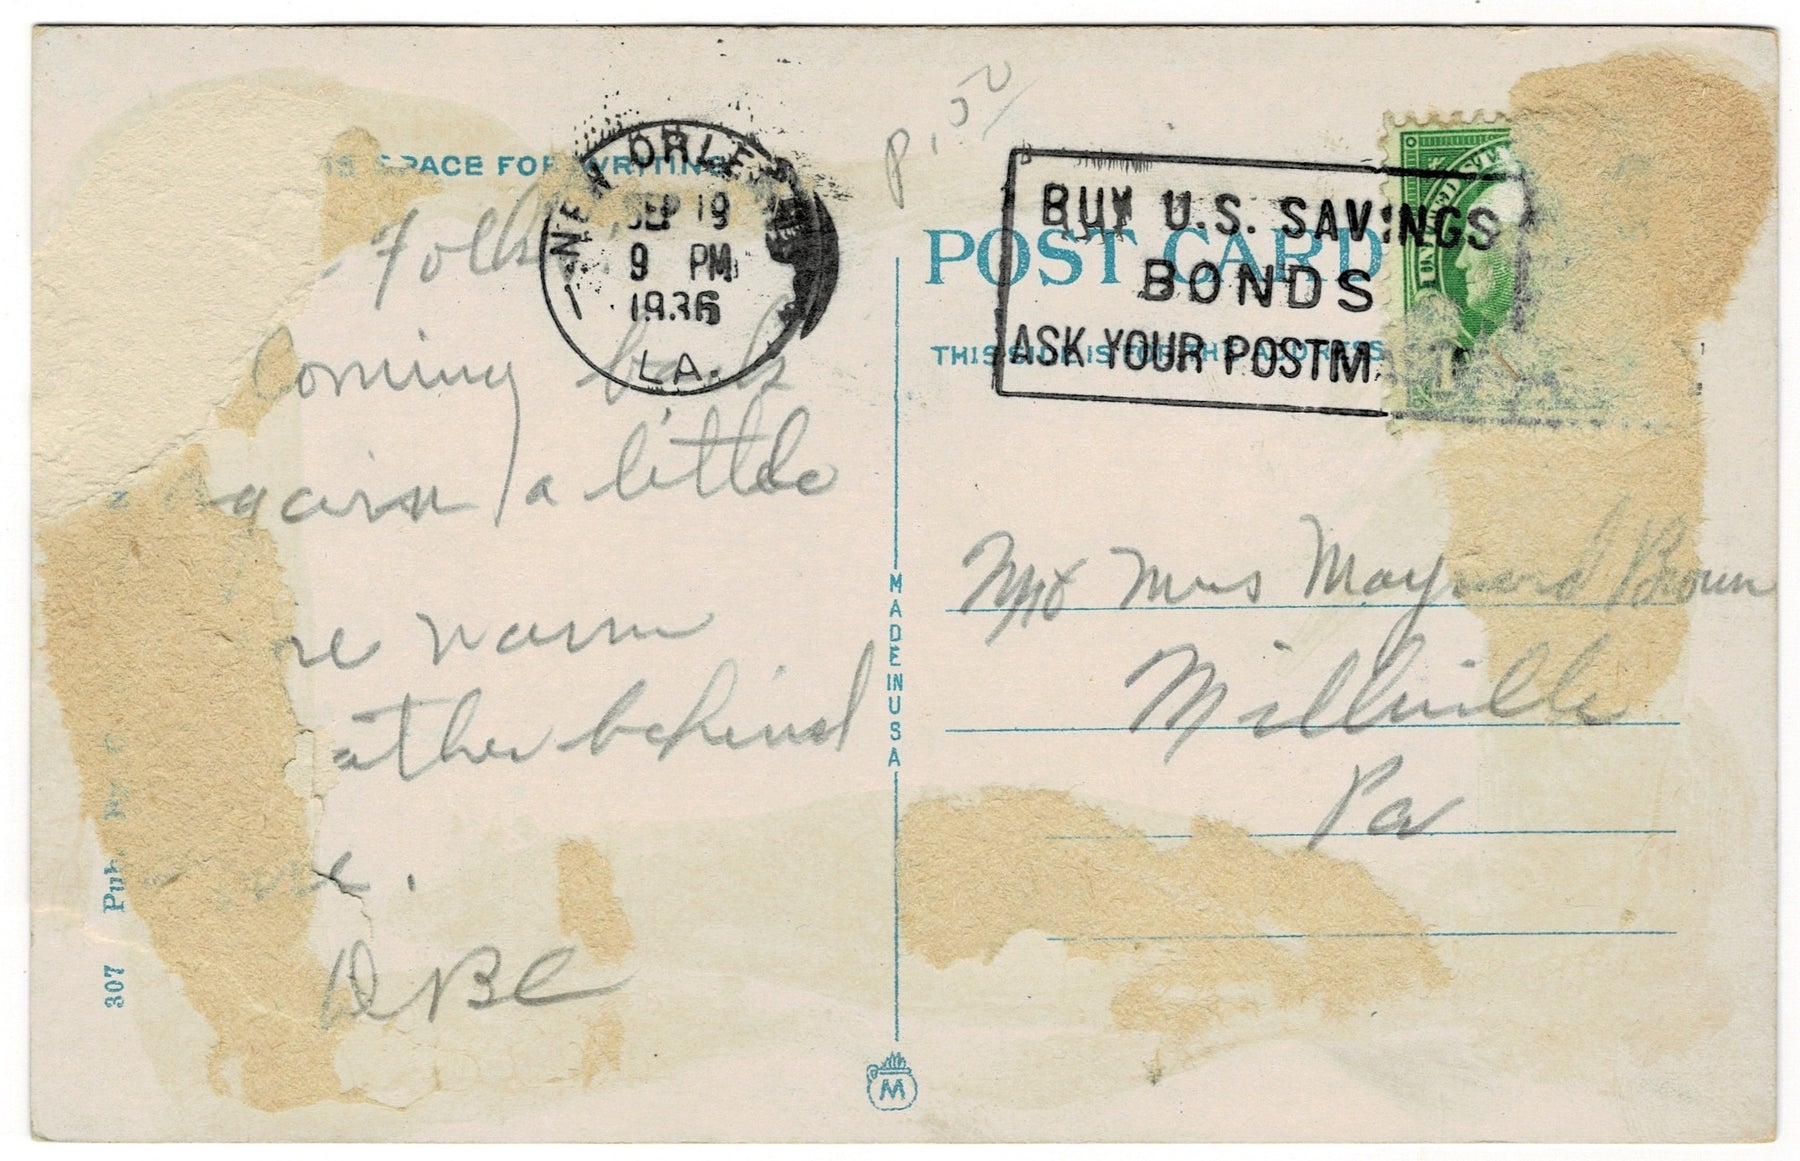 IS SPACE FOR WRITING
NEW ORLEANS
SEP 19
9 PM
1936
LA.
P.
BUY U.S. SAVINGS
BONDS
ASK YOUR POSTM
POST CARD
THIS SIDE IS FOR THE ADDRESS
Folks
Coming back
again, a little
re warm
ather behind
.
DBC
Mr & Mrs Maynard Brown
Millville
Pa
MADE IN USA
307 Pub. By
M